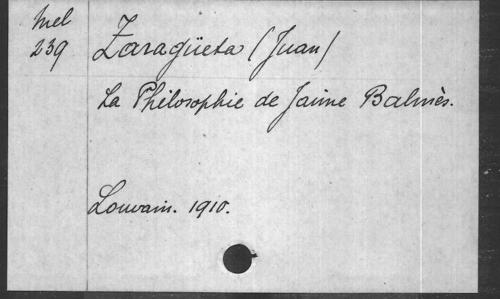 Mel
239
Zaragüeta (Juan)
La Philosophie de Jaime Balmès.
Louvain. 1910.